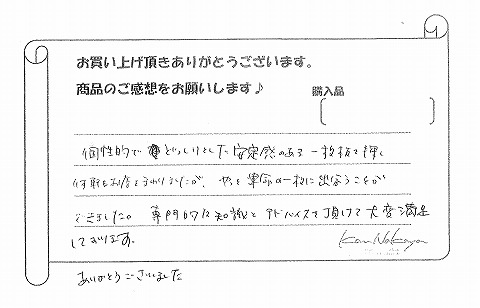 お買い上げ頂きありがとうございます。
商品のご感想をお願いします♪
購入品
個性的でどっしりとした安定感のある一枚板を探し
何軒もお店をまわりましたが、やっと運命の一枚に出会うことが
できました。専門的な知識とアドバイスを頂けて大変満足
しております。
ありがとうございました